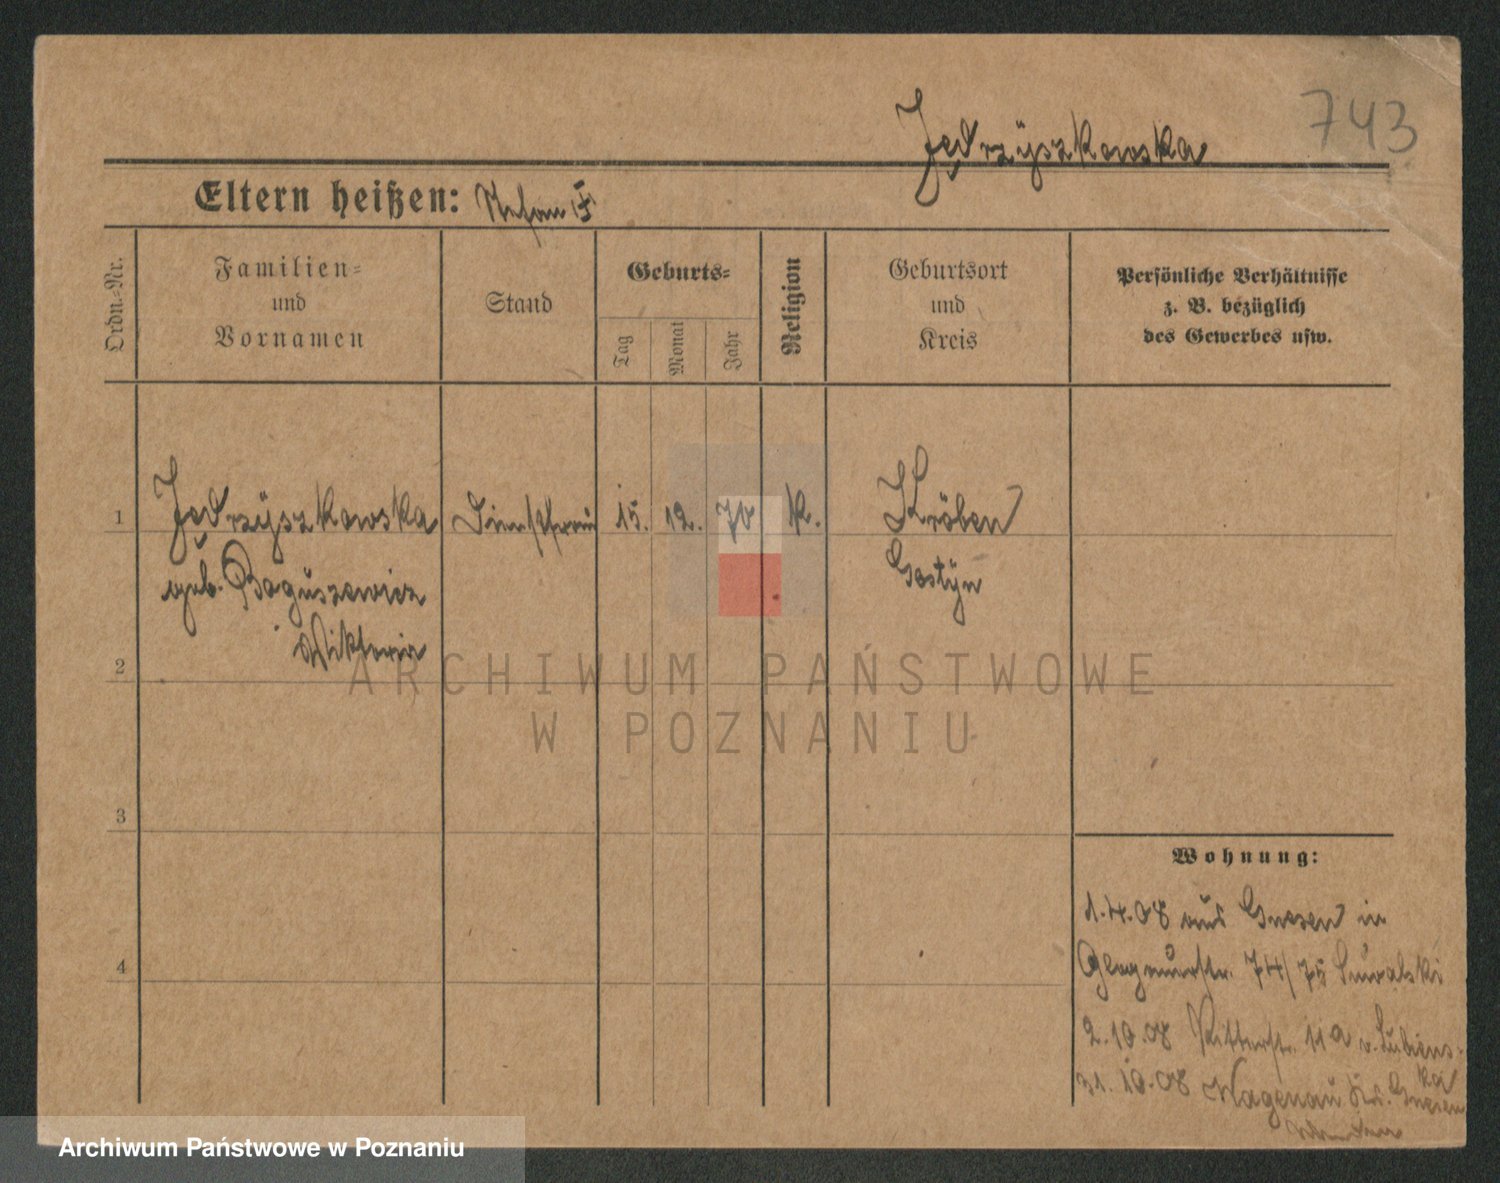 743
Jędrzÿszkowska
Eltern heißen: Stefan
Ordn.=Nr.
Familien=
und
Vornamen
Stand
Geburts=
Tag
Monat
Jahr
Religion
Geburtsort
und
Kreis
Persönliche Verhältnisse
z. B. bezüglich
des Gewerbes usw.
1
Jędrzÿszkowska
geb. Boguszewicz
Wiktoria
15. 12. 70 k. Kröben
Gostÿn
2
3
4
Wohnung:
1.4.08 aus Gnesen in
Glogauerstr. 74/75 Suwalski
2.10.08 Ritterstr. 11a v. Lubiens-
ka
31.10.08 Wagenau Kr. Gnesen
ARCHIWUM PAŃSTWOWE
W POZNANIU
Archiwum Państwowe w Poznaniu